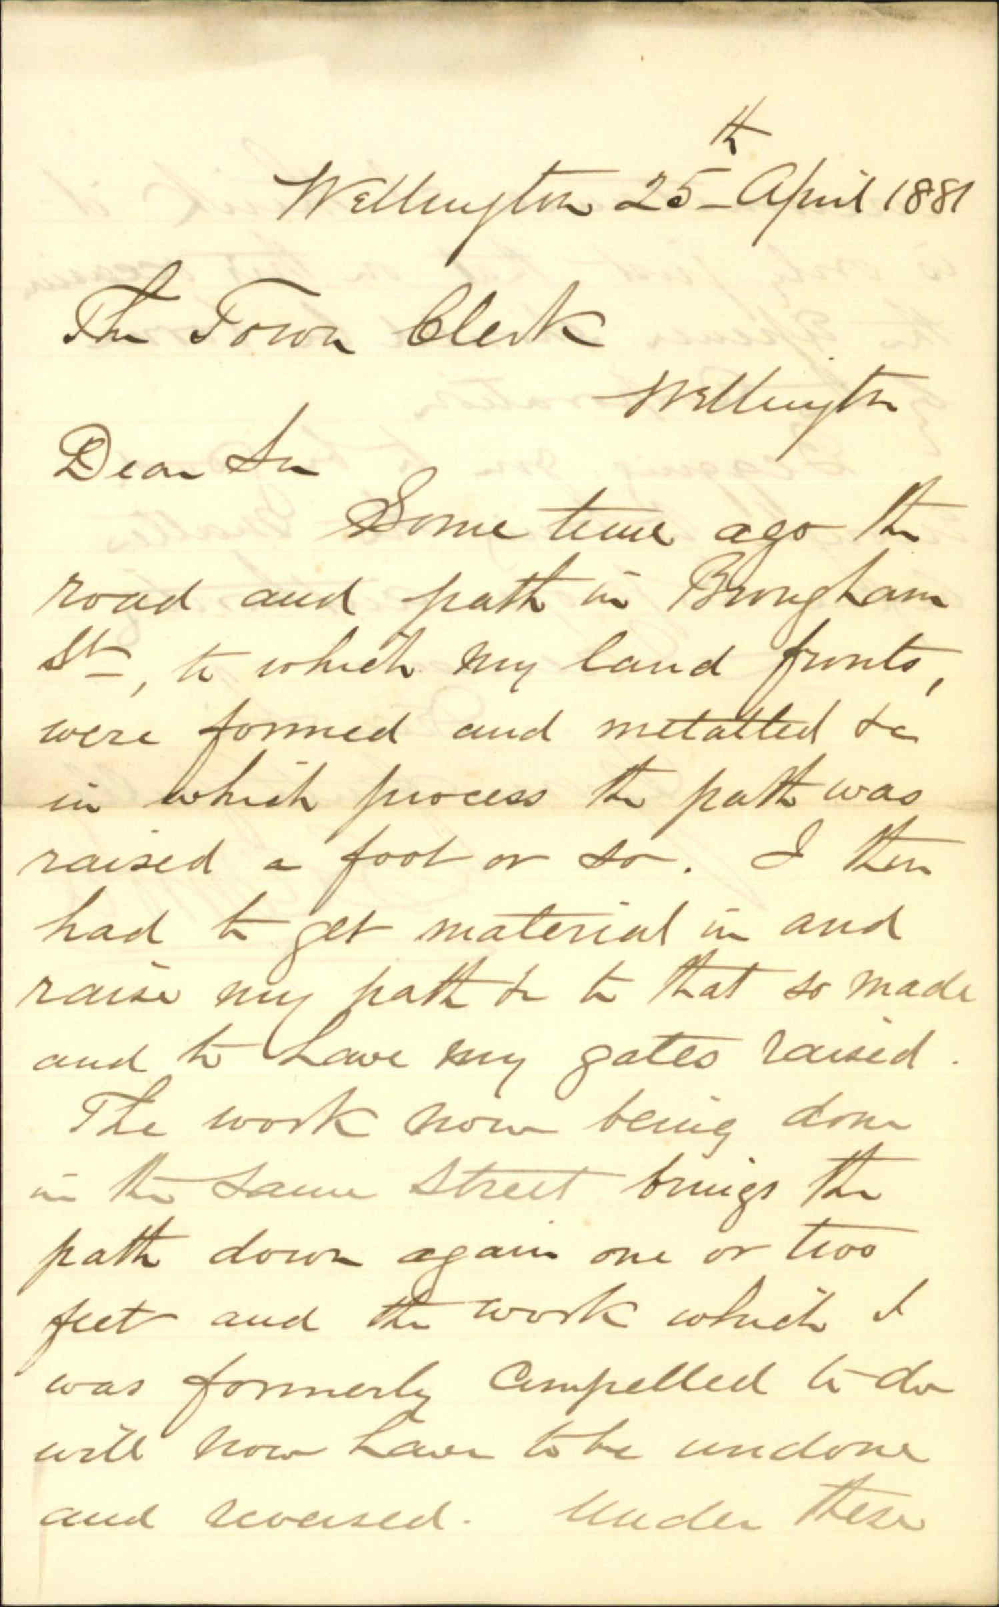 Wellington 25th April 1881
The Town Clerk
Wellington
Dear Sir
Some time ago the
road and path in Brougham
St, to which my land fronts,
were formed and metalled &c
in which process the path was
raised a foot or so. I then
had to get material in and
raise my path &c to that so made
and to have my gates raised.
The work now being done
in the same street brings the
path down again one or two
feet and the work which I
was formerly compelled to do
will now have to be undone
and reversed. Under these